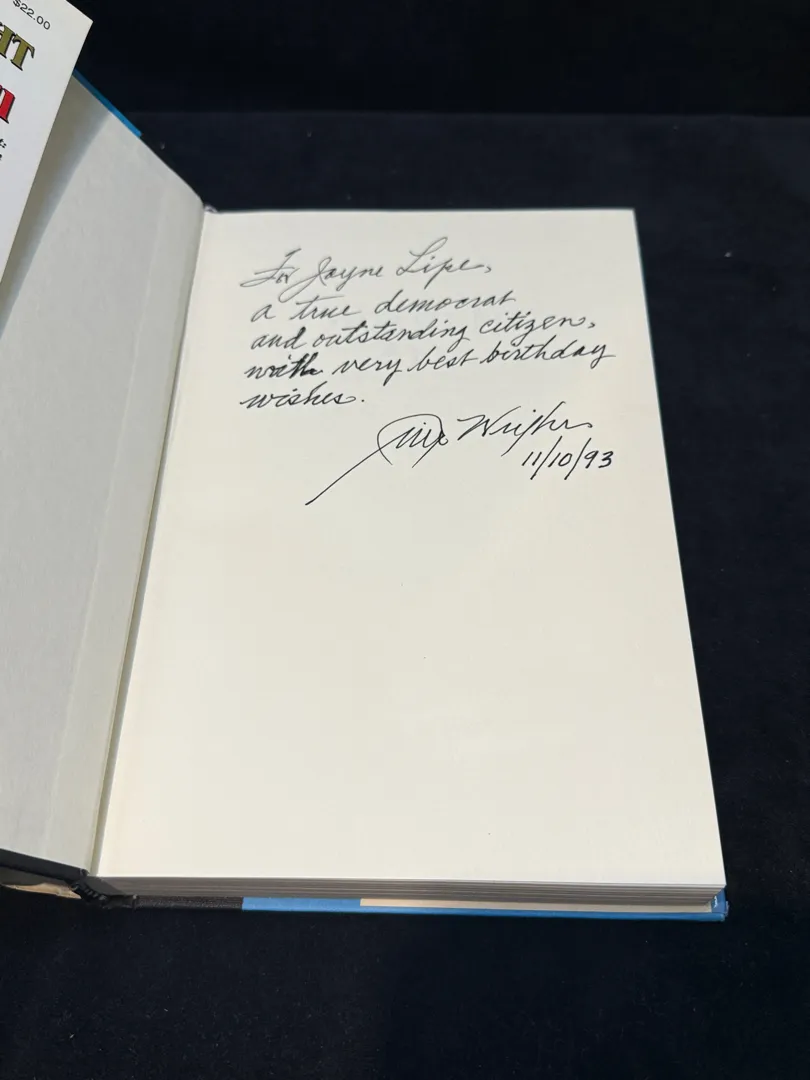 $22.00
HT
For Jayne Lipe,
a true democrat
and outstanding citizen,
with very best birthday
wishes.
Jim Wright
11/10/93